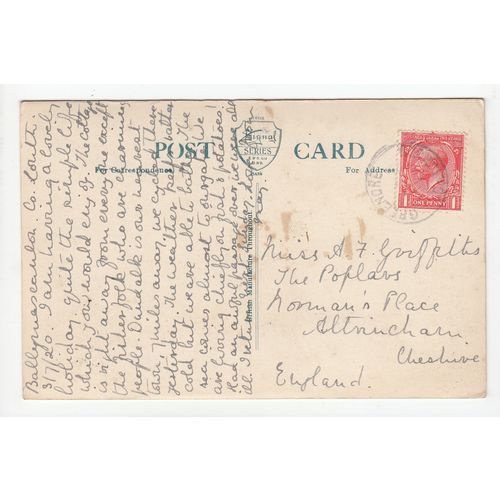 POST CARD
Signal
SERIES
For Correspondence
For Address
British Manufacture Throughout
Ballymascanlon Co. Louth.
3/7/20. I am having a lovely
holiday, quite the simple life
which you would enjoy. The cottage
is right away from every one except
the fisher folk who are charming
people. Dundalk is our nearest
town 7 miles away, we were there
yesterday. The weather is rather
cold but we are able to bathe. The
sea comes almost to our gate. We
are living chiefly on fish & potatoes!
Had an awful passage over, we were all
ill.
year.
ONE PENNY
1
1
GREENORE
Miss A F Griffiths
The Poplars
Norman's Place
Altrincham
Cheshire
England.